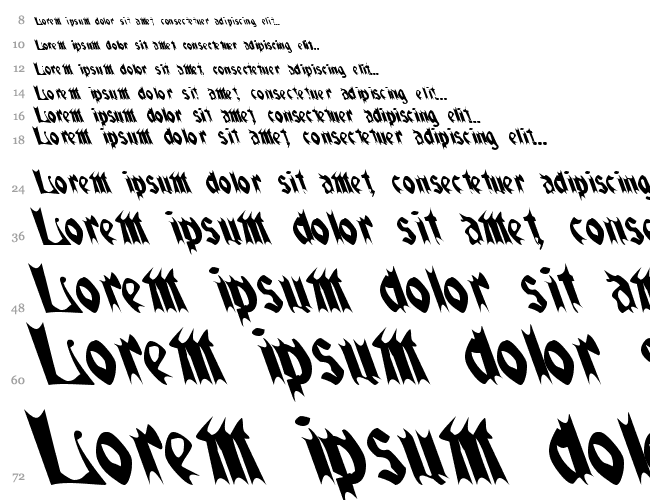 8 Lorem ipsum dolor sit amet, consectetuer adipiscing elit...
10 Lorem ipsum dolor sit amet, consectetuer adipiscing elit...
12 Lorem ipsum dolor sit amet, consectetuer adipiscing elit...
14 Lorem ipsum dolor sit amet, consectetuer adipiscing elit...
16 Lorem ipsum dolor sit amet, consectetuer adipiscing elit...
18 Lorem ipsum dolor sit amet, consectetuer adipiscing elit...
24 Lorem ipsum dolor sit amet, consectetuer adipiscing
36 Lorem ipsum dolor sit amet, conse
48 Lorem ipsum dolor sit am
60 Lorem ipsum dolor
72 Lorem ipsum dol